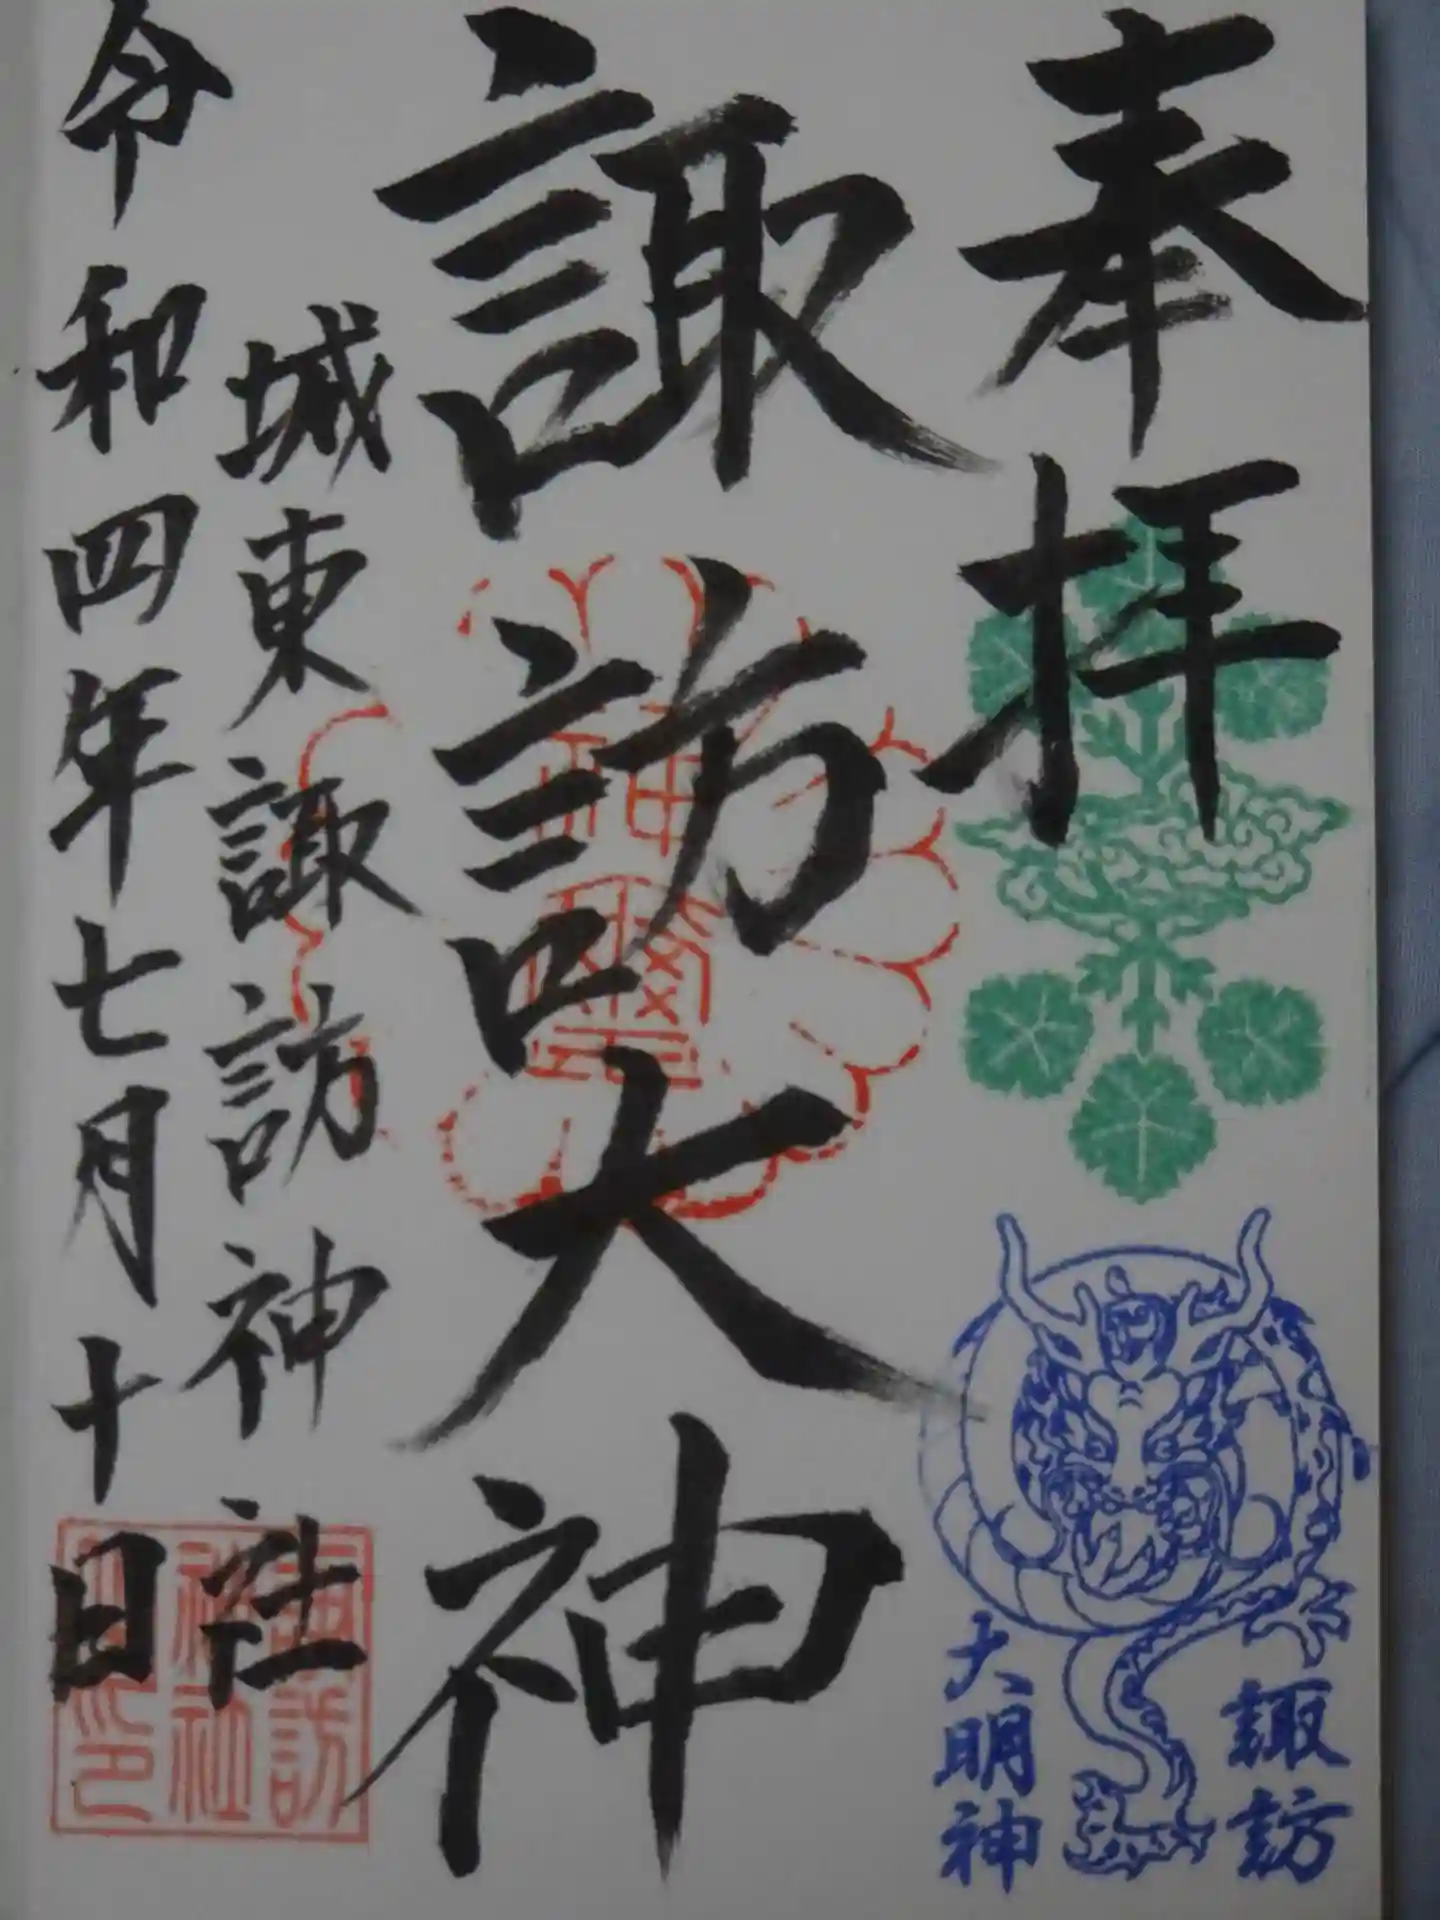 奉拝
諏訪大神
城東諏訪神社
令和四年七月十日
諏訪
大明神
諏訪
神社